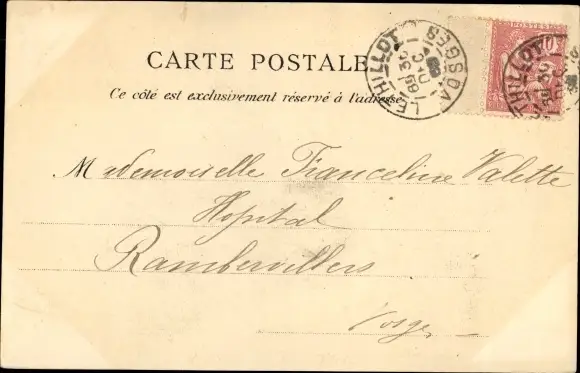 CARTE POSTALE
Ce côté est exclusivement réservé à l'adresse
LE THILLOT
VOSGES
POSTES
10
THILLOT
Mademoiselle Franceline Valette
Hopital
Rambervillers
Vosges